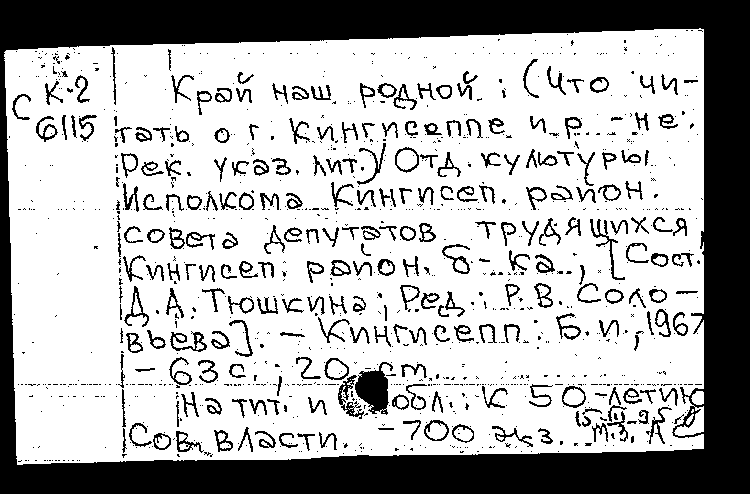 С К-2
6115
Край наш родной : (Что чи-
тать о г. Кингисеппе и р-не.
Рек. указ. лит.) / Отд. культуры
Исполкома Кингисеп. район.
совета депутатов трудящихся,
Кингисеп. район. б-ка ; [Сост.
Д.А. Тюшкина ; Ред.: Р.В. Соло-
вьева]. - Кингисепп : Б.и., 1967
- 63 с. ; 20 cm.
На тит. и обл.: К 50-летию
Сов. власти. - 700 экз.